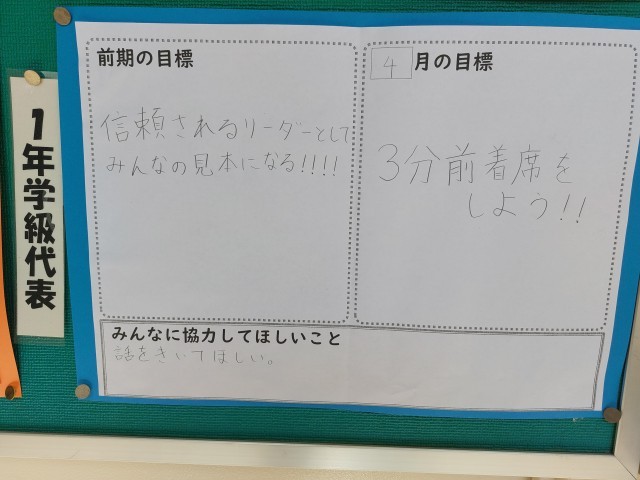 1年学級代表
前期の目標
信頼されるリーダーとして
みんなの見本になる!!!!
4月の目標
3分前着席を
しよう!!
みんなに協力してほしいこと
話をきいてほしい。